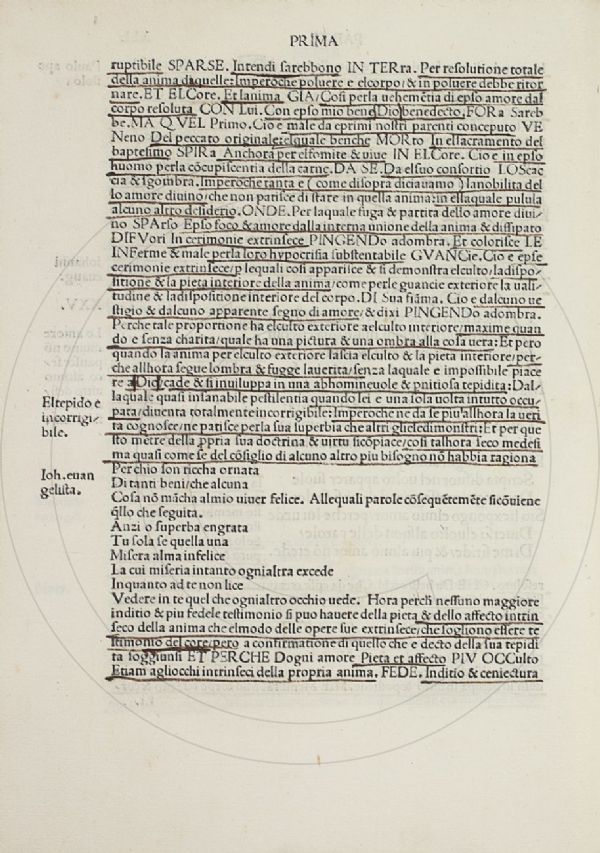 PRIMA
ruptibile SPARSE. Intendi sarebbono IN TERra. Per resolutione totale
della anima di quelle: Imperoche poluere e elcorpo/& in poluere debbe ritor
nare. ET ELCore. Et lanima GIA/Cosi perla uehemẽtia di epso amore dal
corpo resoluta CON Lui. Con epso mio bene Dio benedecto, FORa Sareb
be. MA QVEL Primo. Cio e male da eprimi nostri parenti conceputo VE
Neno Del peccato originale: elquale benche MORto In ellacramento del
baptesimo SPIRa Anchora per elfomite & uiue IN ELCore. Cio e in epso
huomo perla cõcupiscentia della carne. DA SE. Da elsuo consortio LOScac
cia & sgombra. Imperoche tanta e (come disopra diciauamo) lanobilita del
lo amore diuino/che non patisce di stare in quella anima: in ellaquale pulula
alcuno altro desiderio. ONDE. Per laquale fuga & partita dello amore diui/
no SPArso Epso foco & amore dalla interna unione della anima & dissipato
DIFVori In cerimonie extrinsece PINGENDo adombra. Et colorisce LE
INFerme & male perla loro hypocrisia substentabile GVANCie. Cio e epse
cerimonie extrinsece/p lequali cosi apparisce & si demonstra elculto/ladispo/
sitione & la pieta interiore della anima/come perle guancie exteriore la uali/
tudine & ladispositione interiore del corpo. DI Sua fiãma. Cio e dalcuno ue
stigio & dalcuno apparente segno di amore/& dixi PINGENDo adombra.
Perche tale proportione ha elculto exteriore aelculto interiore/maxime quan
do e senza charita/quale ha una pictura & una ombra alla cosa uera: Et pero
quando la anima per elculto exteriore lascia elculto & la pieta interiore/per/
che allhora segue lombra & fugge lauerita/senza laquale e impossibile piace
re a Dio/cade & si inuiluppa in una abhomineuole & pnitiosa tepidita: Dal/
laquale quasi insanabile pestilentia quando lei e una sola uolta intutto occu/
pata/diuenta totalmente incorrigibile: Imperoche ne da se piu allhora la ueri
ta cognosce/ne patisce perla sua superbia che altri gliele dimostri: Et per que
sto mẽtre della ppria sua doctrina & uirtu si cõpiace/cosi talhora seco medesi
ma quasi come se del cõsiglio di alcuno altro piu bisogno nõ habbia ragiona
Eltepido e
incorrigi/
bile.
Ioh. euan
gelista.
Perchio son riccha ornata
Di tanti beni/che alcuna
Cosa nõ mãcha almio uiuer felice. Allequali parole cõsequẽtemẽte si cõuiene
q̃llo che seguita.
Anzi o superba engrata
Tu sola se quella una
Misera alma infelice
La cui miseria intanto ognialtra excede
Inquanto ad te non lice
Vedere in te quel che ognialtro occhio uede. Hora perch nessuno maggiore
inditio & piu fedele testimonio si puo hauere della pieta & dello affecto intrin
seco della anima che elmodo delle opere sue extrinsece/che sogliono essere te
stimonio del core/pero a confirmatione di quello che e decto della sua tepidi
ta soggiunsi ET PERCHE Dogni amore Pieta et affecto PIV OCCulto
Etiam agliocchi intrinseci della propria anima. FEDE. Inditio & ceniectura